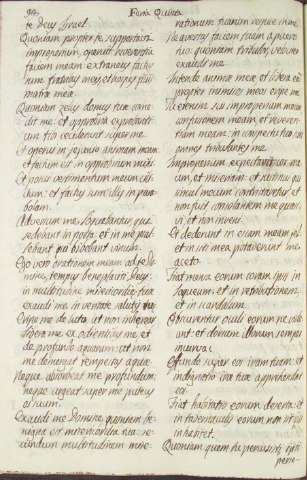 94 Feria Quinta
te Deus Israel.
Quoniam propter te sustinui
improperium, operuit reverentia
faciem meam extraneus factus
sum fratribus meis, et hospes filijs
matris meæ.
Quoniam zelus domus tuæ come
dit me: et opprobria exprobantiū
tibi ceciderunt super me.
Et operui in jejunio animam meam
et factum est in opprobrium mihi.
Et posui vestimentum meum cili
cium: et factus sum illis in para
bolam.
Adversum me loquebantur qui
sedebant in porta: et in me psal
lebant qui bibebant vinum.
Ego vero orationem meam ad te Do
mine, tempus beneplaciti, Deus.
In multitudine misericordiæ tuæ
exaudi me in veritate salutis tuæ.
Eripe me de luto, ut non infigar:
libera me ab odientibus me et
de profundis aquarum.
me demergat tempestas aquæ
neque absorbeat me profundum:
neque urgeat super me puteus
os suum.
Exaudi me Domine quoniam be
nigna est misericordia tua: se
cundum multitudinem mise-
rationum tuarum respice in me.
Ne avertas faciem tuam a puero
tuo: quoniam tribulor, velociter
exaudi me.
Intende animæ meæ et libera eā
propter inimicos meos eripe me
Tu scis improperium meum
confusionem meam, et reveren-
tiam meam: in conspectu tuo sūt
omnes tribulantes me
Improperium expectavit cor me
um, et miseriam: et sustinui qui
simul mecum contristaretur et
non fuit consolantem me quæsi
vi, et non inveni.
Et dederunt in escam meam fel
et in siti mea potaverunt me
aceto.
Fiat mensa eorum coram ipsis in
laqueum: et in retributionem
et in scandalum.
Obscurentur oculi eorum ne vide
ant et dorsum illorum semper
incurva.
Effunde super eos iram tuam: et
indignatio iræ tuæ apprehendat
eos.
Fiat habitatio eorum deserta: et
in tabernaculis eorum non sit qui
inhabitet.
Quoniam quem tu percussisti,
perse-